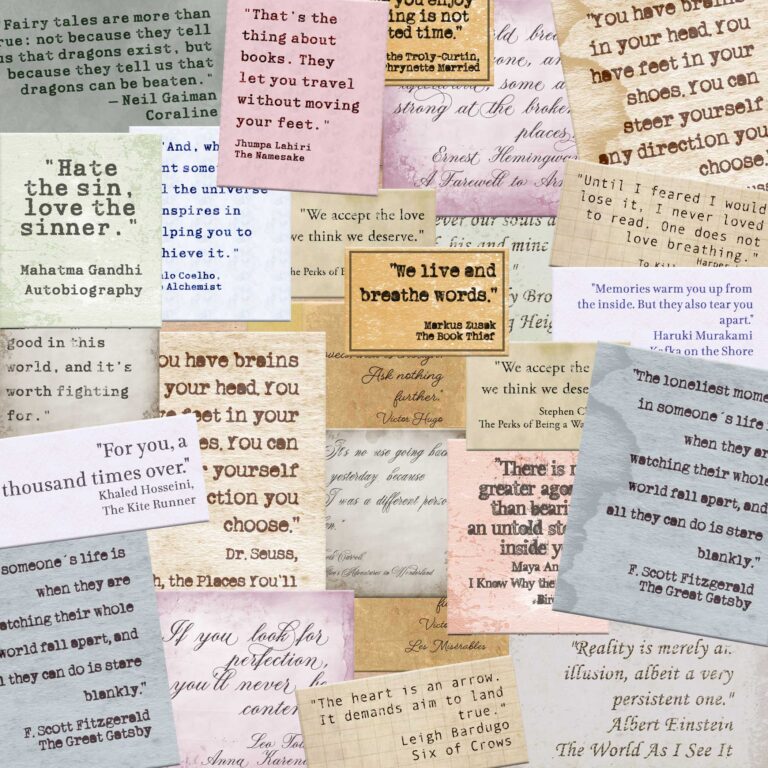 "Fairy tales are more than
rue: not because they tell
us that dragons exist, but
because they tell us that
dragons can be beaten."
— Neil Gaiman
Coraline
"That's the
thing about
books. They
let you travel
without moving
your feet."
Jhumpa Lahiri
The Namesake
you enjoy
ing is not
ted time."
the Troly-Curtin,
Phrynette Married
some a
strong at the broken
places
Ernest Hemingway
A Farewell to Arms
"You have brains
in your head. You
have feet in your
shoes. You can
steer yourself
any direction you
choose.
"Hate
the sin,
love the
sinner."
Mahatma Gandhi
Autobiography
"And, wh
nt some
l the universe
nspires in
lping you to
hieve it."
lo Coelho,
Alchemist
"We accept the love
we think we deserve."
he Perks of B
ever our souls a
his and mine
y Bro
g Heig
"Until I feared I would
lose it, I never loved
to read. One does not
love breathing."
Harper
To Kill
"We live and
breathe words."
Markus Zusak
The Book Thief
"Memories warm you up from
the inside. But they also tear you
apart."
Haruki Murakami
Kafka on the Shore
good in this
world, and it's
worth fighting
for."
ou have brains
your head. You
feet in your
es. You can
yourself
ction you
choose."
Dr. Seuss,
h, the Places You'll
Ask nothing
further."
Victor Hugo
"We accept the
we think we dese
Stephen C
The Perks of Being a Wa
"The loneliest mome
in someone´s life i
when they ar
watching their whole
world fall apart, and
all they can do is stare
blankly."
F. Scott Fitzgerald
The Great Gatsby
"For you, a
thousand times over."
Khaled Hosseini,
The Kite Runner
"It's no use going back
yesterday because
I was a different perso
n."
Carroll
Alice's Adventures in Wonderland
"There is n
greater ago
than beari
an untold sto
inside y
Maya An
I Know Why the
Bir
someone´s life is
when they are
atching their whole
world fall apart, and
l they can do is stare
blankly."
F. Scott Fitzgerald
The Great Gatsby
"If you look for
perfection,
you'll never be
conten
Leo To
Anna Karen
fu
Victo
Les Misérables
"The heart is an arrow.
It demands aim to land
true."
Leigh Bardugo
Six of Crows
"Reality is merely an
illusion, albeit a very
persistent one."
Albert Einstein
The World As I See It